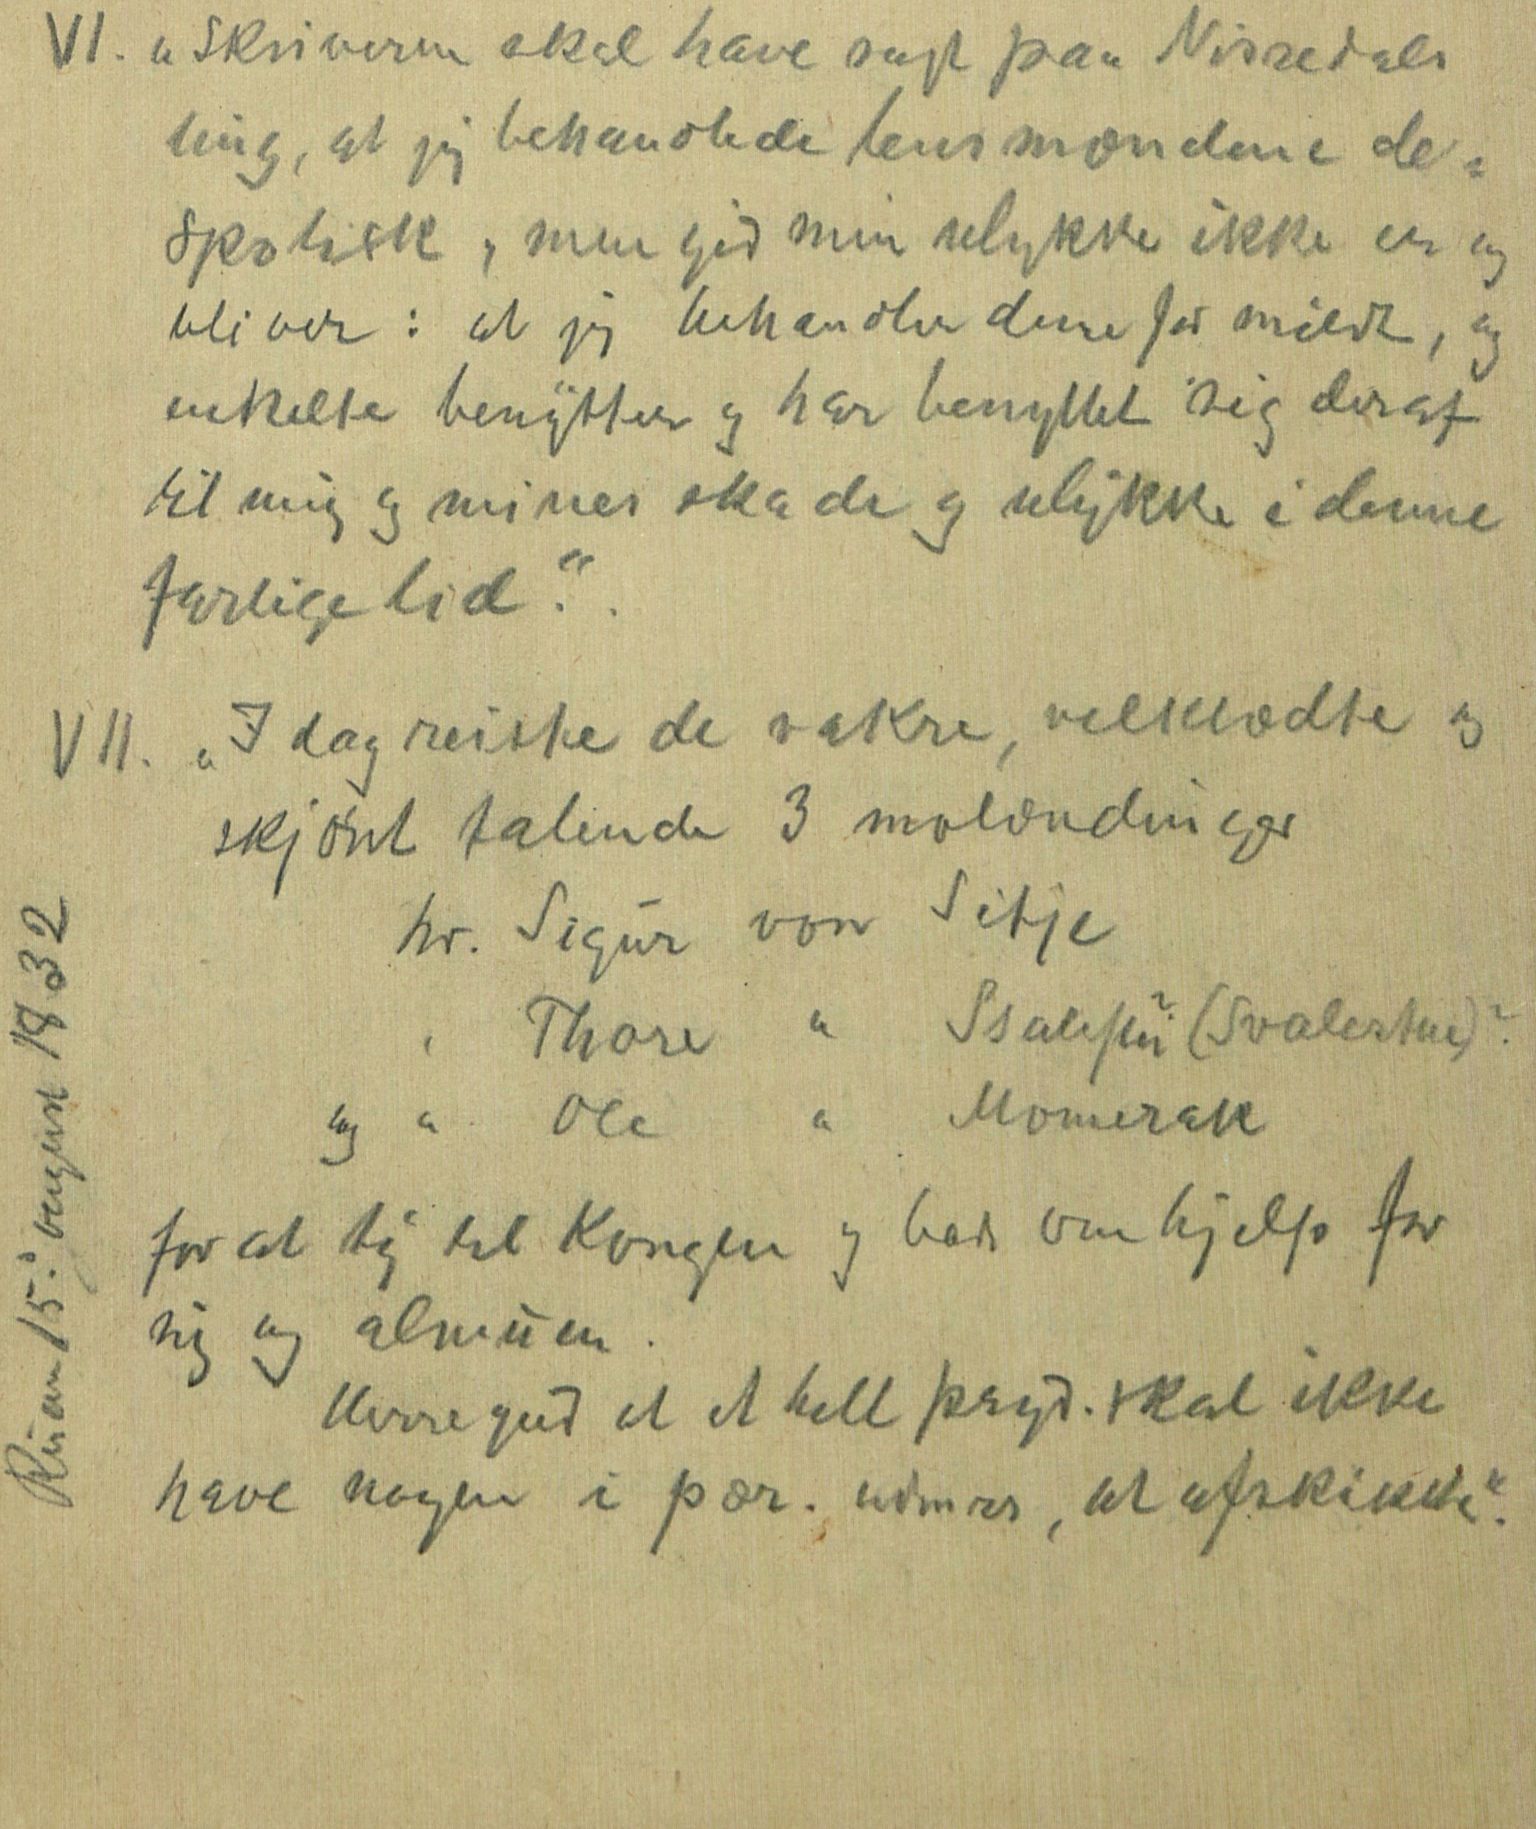 VI. „Skriveren skal have sagt paa Nissedals
ting, at jeg behandlede lensmændene de-
spotisk, men gid min ulykke ikke er og
bliver: at jeg behandler dem for mildt, og
enkelte benytter og har benyttet sig deraf
til mig og mines skade og ulykke i denne
farlige tid.“.
VII. „I dag reiste de vakre, velklædte og
skjönt talende 3 molændinger
hr. Sigur von Sitje
" Thore " (Svalestue)?
og " Ole " Momerak
for at ty til Kongen og bede om hjelp for
sig og almuen.
Herregud at et helt prgjd. skal ikke
have nogen i pær. , at afskikke“.
15: 1832